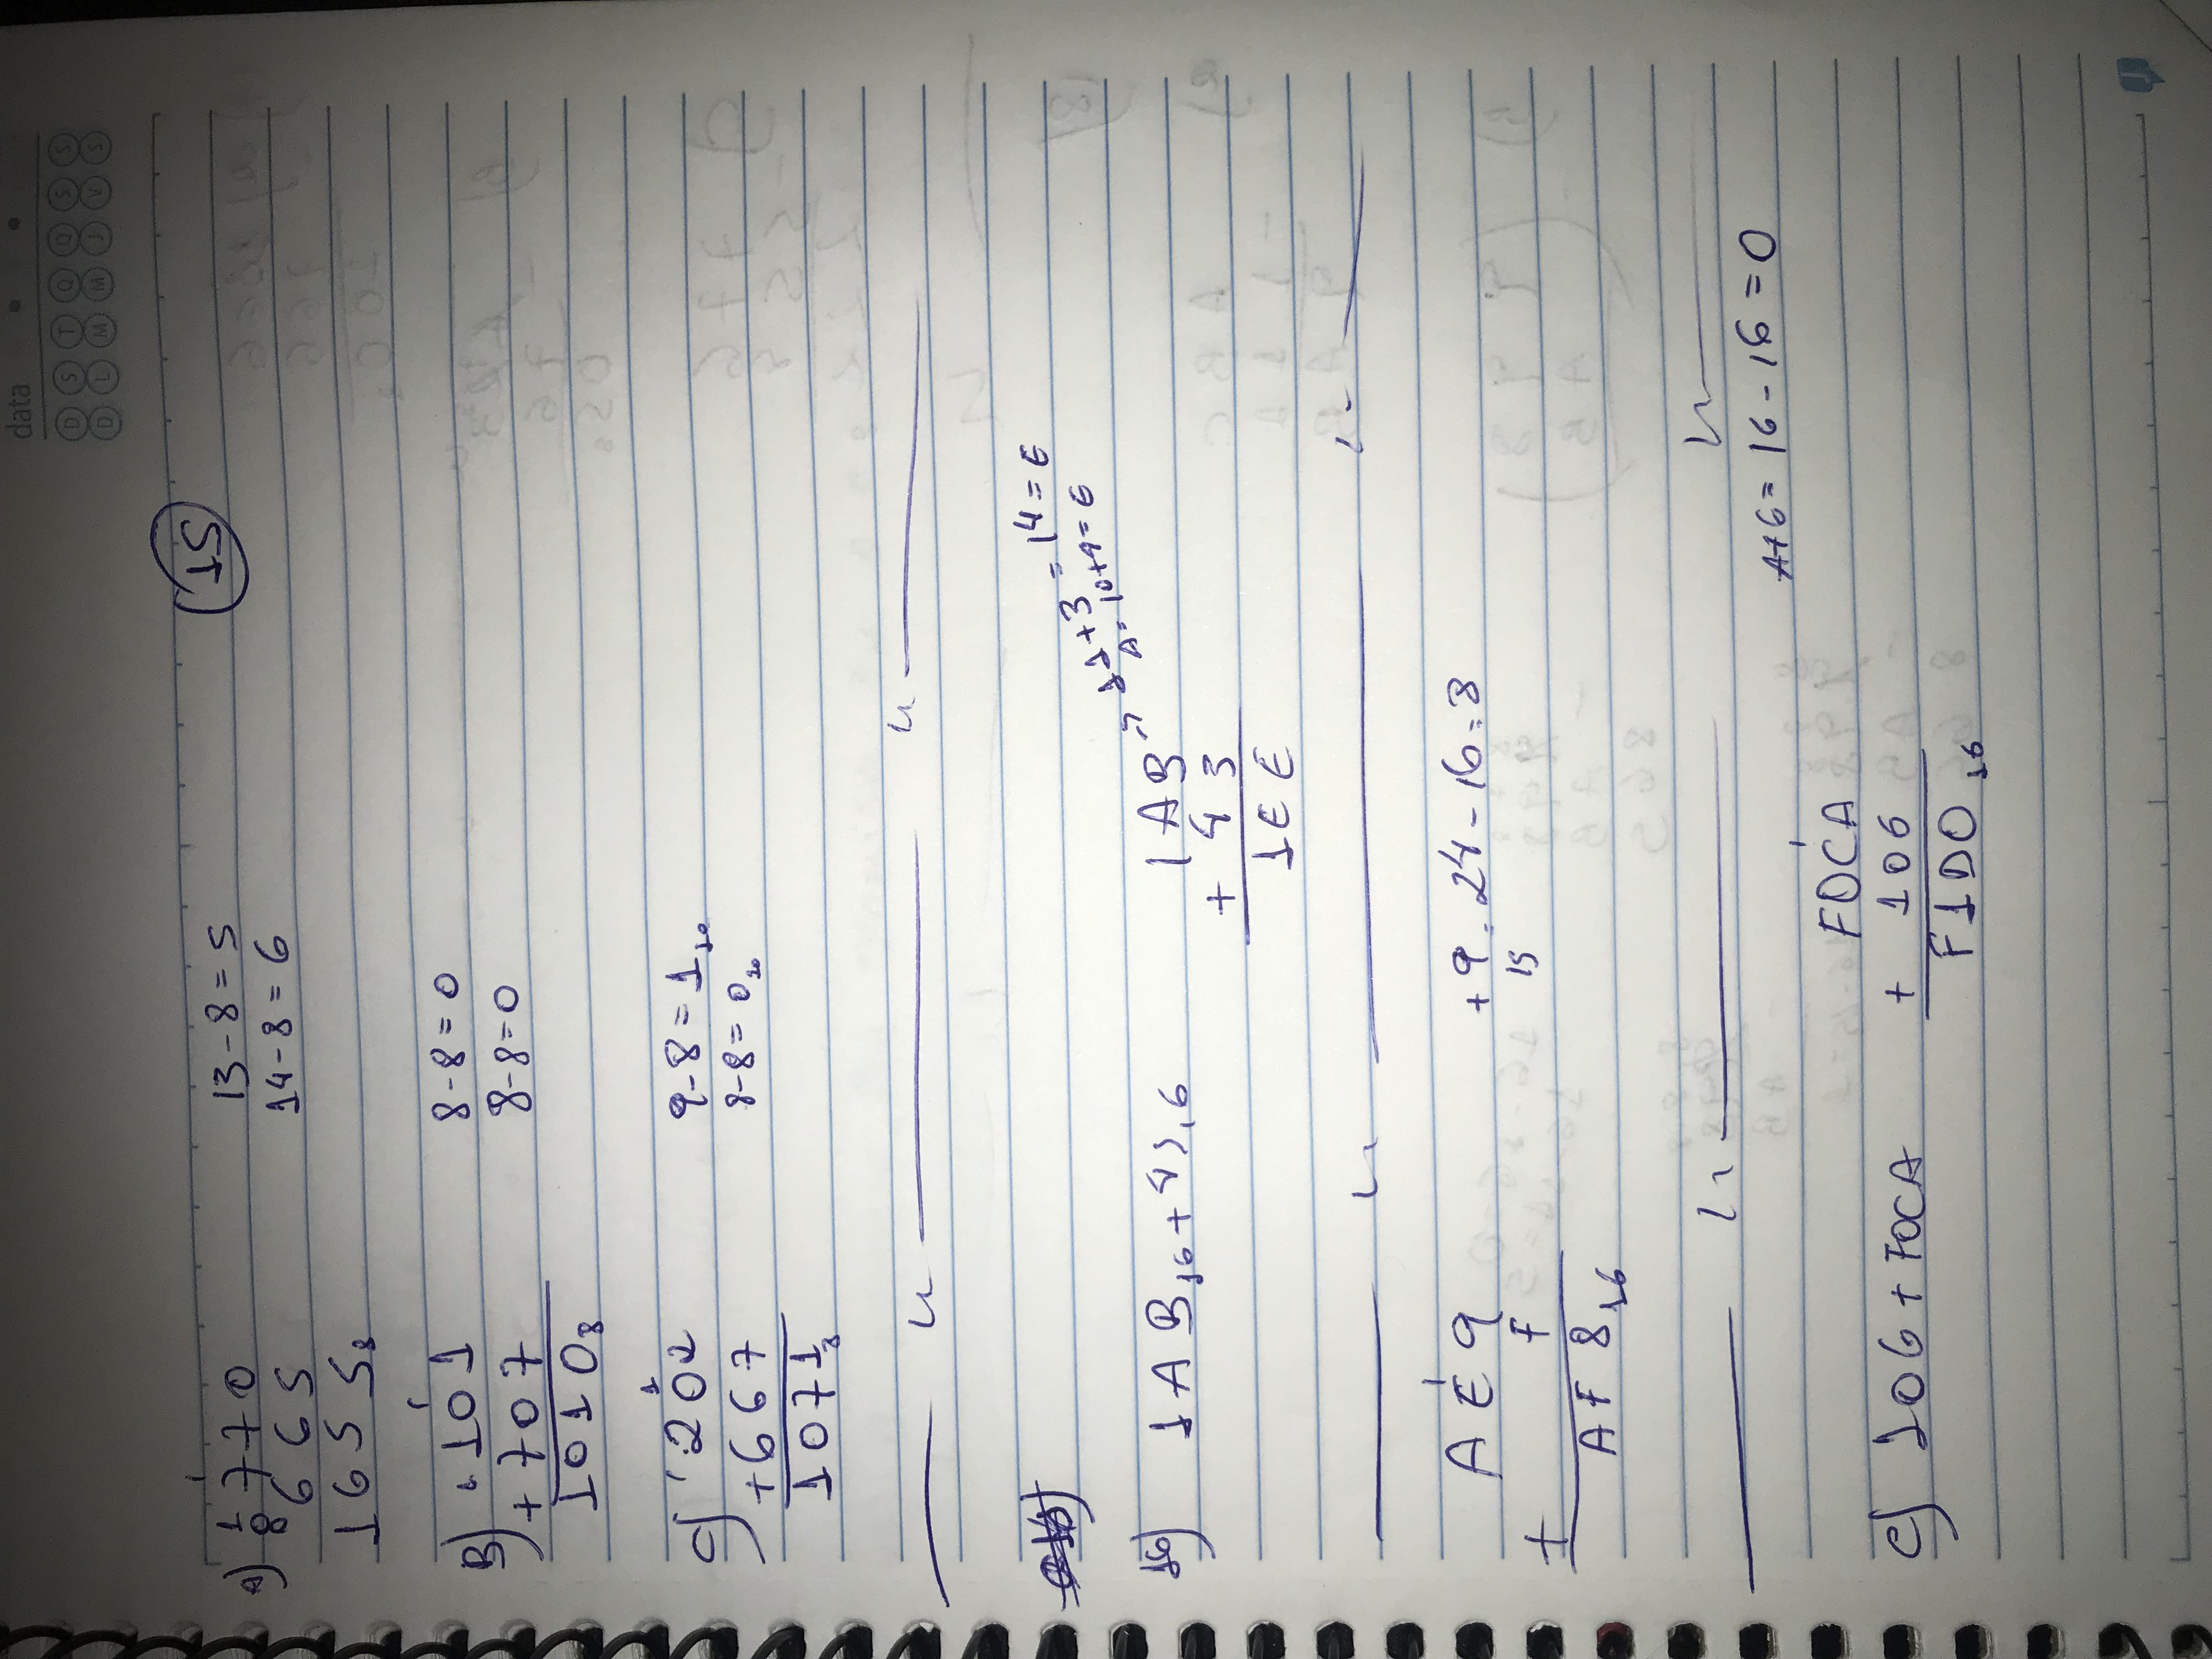 data
D S T Q Q S S
D L M M J V S
15
A) 1 1
8 7 7 0
6 6 5
1 6 5 5 8
13 - 8 = 5
14 - 8 = 6
B) 1 1 0 1
+ 7 0 7
1 0 1 0 8
8 - 8 = 0
8 - 8 = 0
1
C) 1 2 0 2
+ 6 6 7
1 0 7 1 8
9 - 8 = 1 10
8 - 8 = 0 10
16) 1 A B 16 + 43 16
1 A B → 11 + 3 = 14 = E
A = 10 + 4 = E
+ 4 3
1 E E
1
A E 9
+ F
A F 8 16
+ 9 = 24 - 16 = 8
15
A + 6 = 16 - 16 = 0
C) 106 + FOCA
1
FOCA
+ 106
F1D0 16